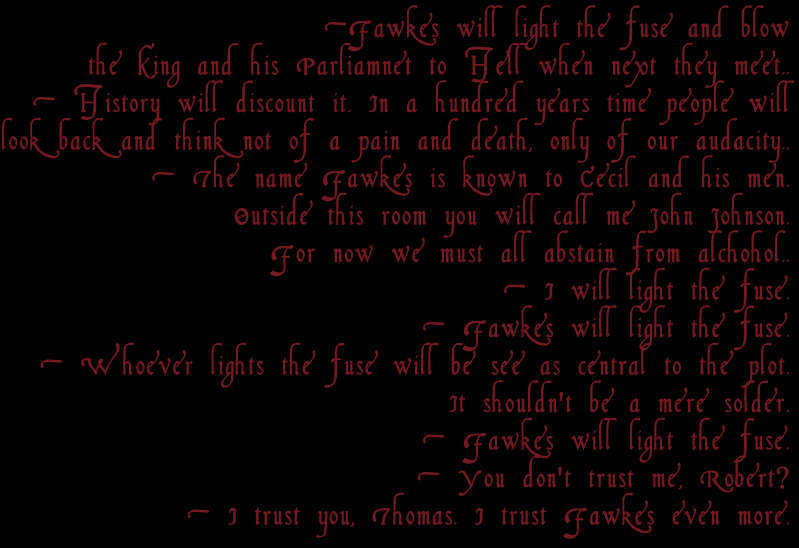 —Fawkes will light the fuse and blow
the King and his Parliamnet to Hell when next they meet..
— History will discount it. In a hundred years time people will
look back and think not of a pain and death, only of our audacity..
— The name Fawkes is known to Cecil and his men.
Outside this room you will call me John Johnson.
For now we must all abstain from alchohol..
— I will light the fuse.
— Fawkes will light the fuse.
— Whoever lights the fuse will be see as central to the plot.
It shouldn't be a mere solder.
— Fawkes will light the fuse.
— You don't trust me, Robert?
— I trust you, Thomas. I trust Fawkes even more.